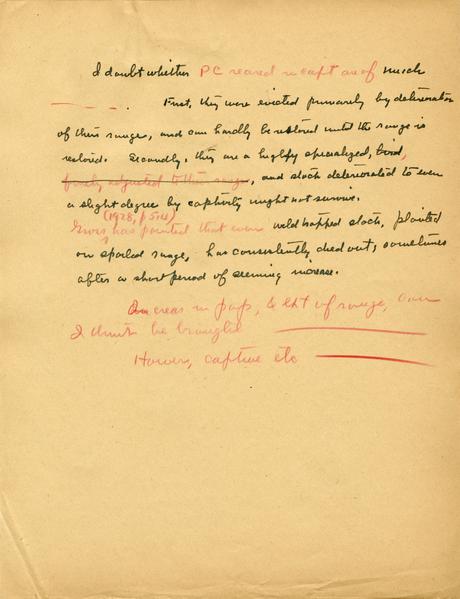 I doubt whether PC reared in capt are of much
— — — — . First, they were evicted primarily by deterioration
of their range, and can hardly be restored until the range is
restored. Secondly, they are a highly specialized, bird,
finely adjusted to their range, and stock deteriorated to even
a slight degree by captivity might not survive.
(1928, p 504)
has pointed that even wild trapped stock, planted
on spoiled range, has consistently died out, sometimes
after a short period of seeming increase.
Increas in pop, & ext of range, can
I think be brought
However, captive etc